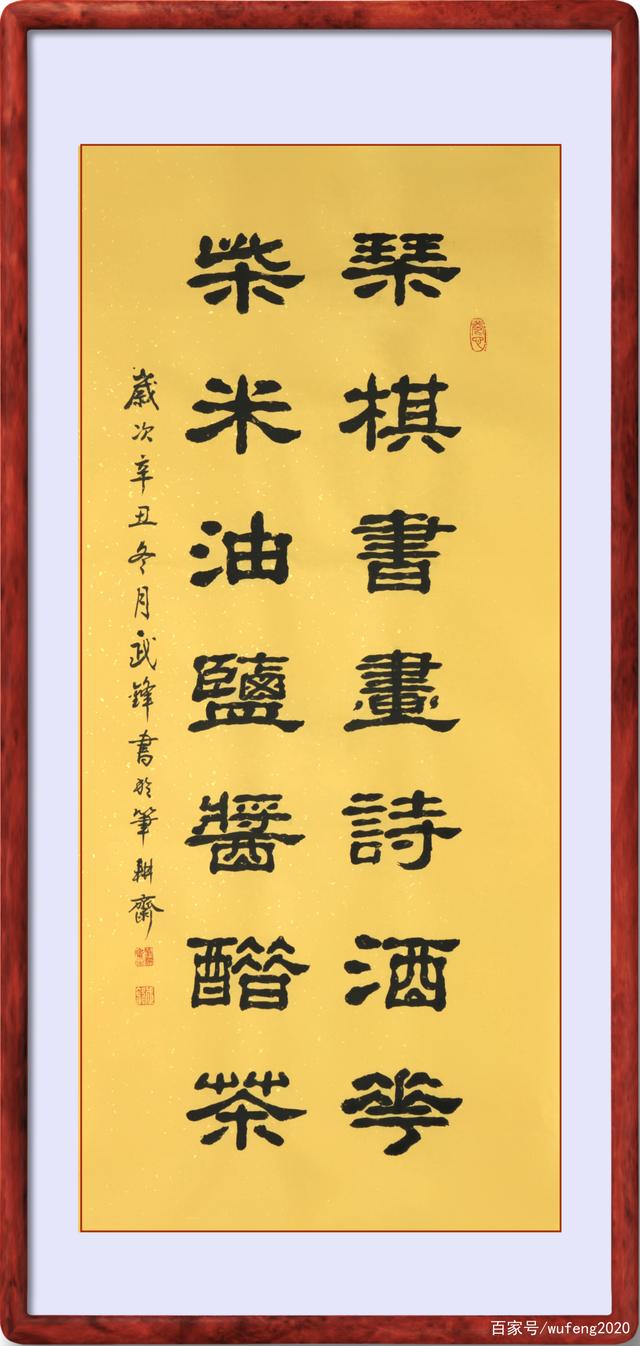 琴棋書畫詩酒花
柴米油鹽醬醋茶
歲次辛丑冬月武鋒書於筆耕齋
百家号/wufeng2020